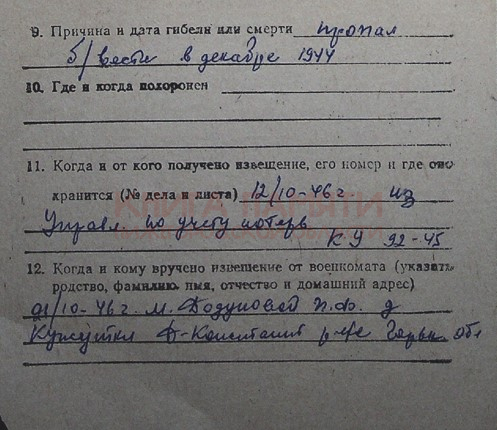 9. Причина и дата гибели или смерти пропал
б/вести в декабре 1944
10. Где и когда похоронен
11. Когда и от кого получено извещение, его номер и где оно
хранится (№ дела и листа) 12/10-46 г из
Управл. по учету потерь
КУ 92-45
12. Когда и кому вручено извещение от военкомата (указать
родство, фамилию, имя, отчество и домашний адрес)
/10-46 г. м. П.Ф. д
Д-Констант р-не Горьк обл